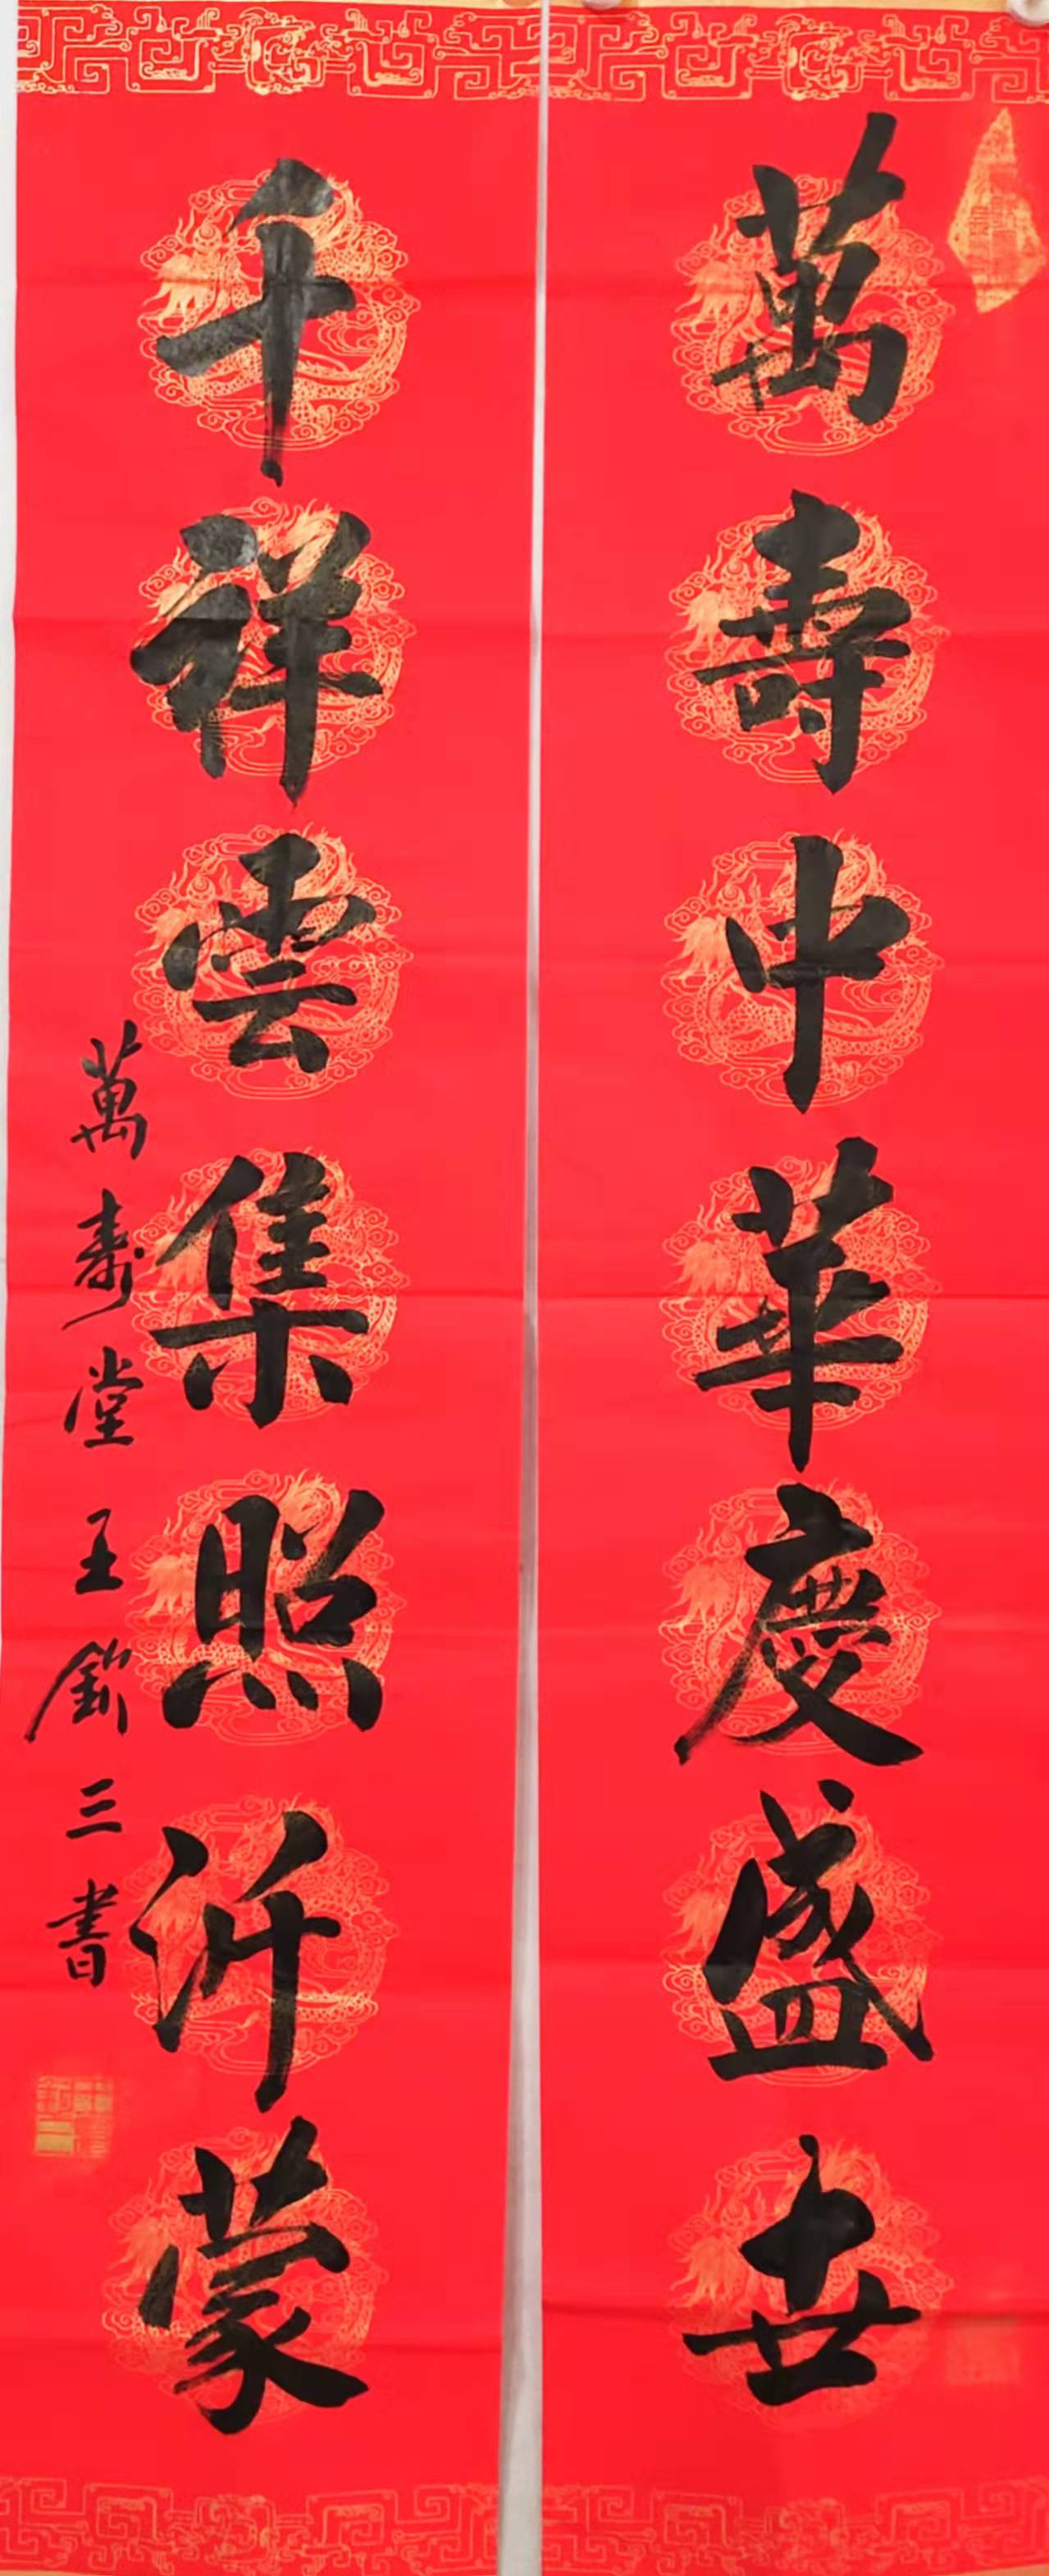 萬壽中華慶盛世
千祥雲集照沂蒙
萬壽堂王欽三書